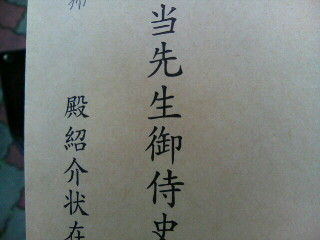 当先生御侍史
殿紹介状在